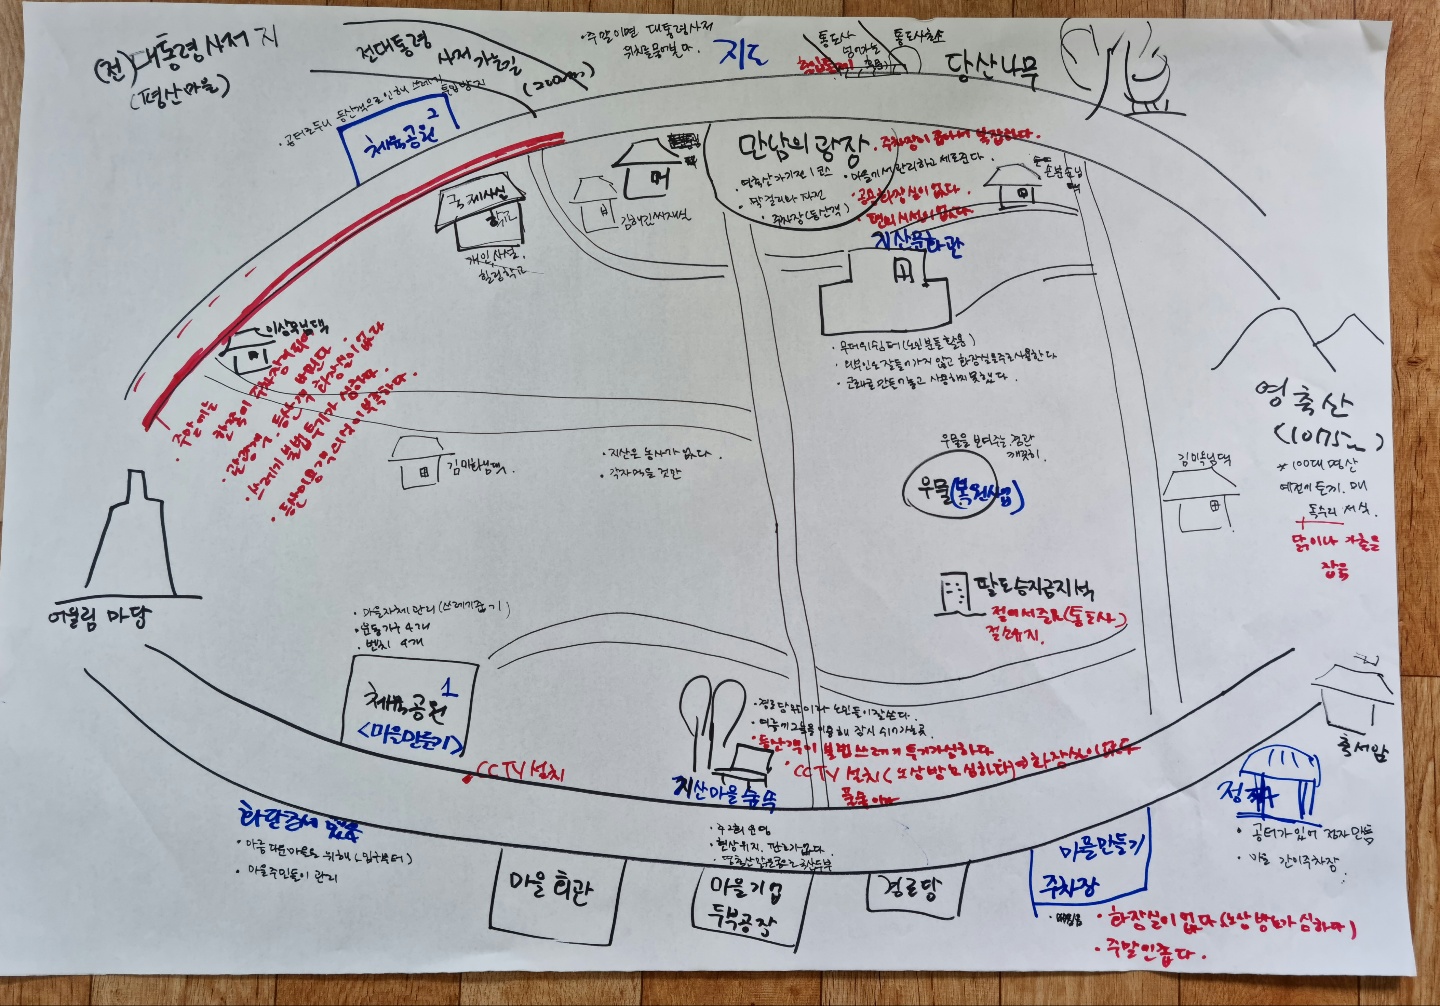 (전) 대통령 사저 지
(평산마을)
전대통령
사저 가는 길
(200m)
• 주말이면 대통령사저
위치를 물어볼 때
지도
통도사
통도사
당산나무
• 공터로 두니 등산객으로 인해 쓰레기
투입 방지
체육공원 2
국제사실
학교
개인사설
힐링학교
만남의 광장
• 영축산 가기전 1코스
• 주차장 (등산객)
• 주차장이 좁아서 복잡하다.
• 마을에서 관리하고 세로준다.
• 공중화장실이 없다.
• 편의시설이 없다
지산문화관
• 무더위쉼터 (노인분들 활용)
• 외부인은 잘 들어가지 않고 화장실을 주로 사용한다
• 근래로 만들어놓고 사용하지 못했다.
이상욱님댁
• 주말에는 한쪽이 주차장처럼
• 관광객, 등산객 화장실이 없다
• 쓰레기 불법 투기가 심하다.
• 등산이용객 의식이 부족하다.
김미화님댁.
• 지산은 농사가 없다.
• 각자 먹을 것만
우물을 보여주는 경관
깨끗이.
우물 (복원사업)
김미옥님댁
영축산
(1075m)
* 100대 명산
예전에 토끼, 매
독수리 서식.
닭이나 가축을
잡음
팔도승지금지석
절에서 준 것 (통도사)
절 소유지.
어울림 마당
• 마을자체 관리 (쓰레기줍기)
• 운동기구 4개
• 벤치 4개
체육공원 1
<마을만들기>
CCTV 설치
• 경로당 뒤이라 노인들이 잘쓴다.
• 여름에 그늘을 이용해 잠시 쉬어가는 곳
• 등산객이 불법 쓰레기 투기가 심하다
• CCTV 설치 (노상방뇨 심하다) → 화장실이 없다
지산마을 숲쪽
축서암
정자
• 공터가 있어 정자 만듦
• 마을 간이주차장.
화단조성
• 마을주민들이 관리
마을회관
• 주2회 운영
• 현상유지, 판로가 없다.
• 영축산 맑은 콩으로 손두부
마을기업
두부공장
경로당
마을만들기
주차장
• 화장실이 없다 (노상방뇨가 심하다)
• 주말 인좁다.